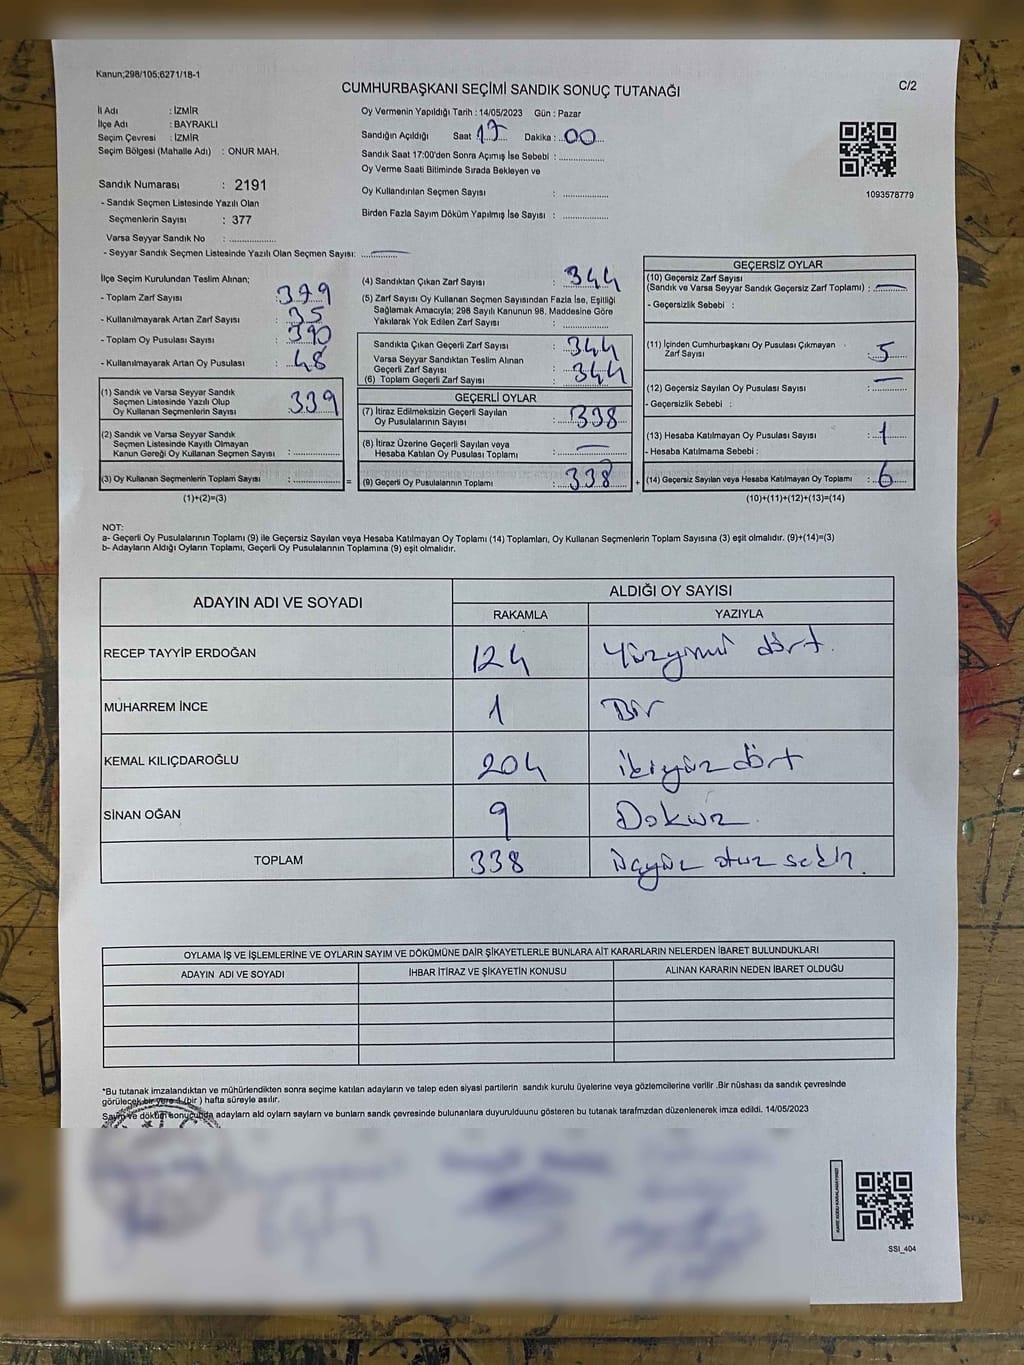 Kanun;298/105;6271/18-1
CUMHURBAŞKANI SEÇİMİ SANDIK SONUÇ TUTANAĞI
C/2
İl Adı : İZMİR
İlçe Adı : BAYRAKLI
Seçim Çevresi : İZMİR
Seçim Bölgesi (Mahalle Adı) : ONUR MAH.
Oy Vermenin Yapıldığı Tarih : 14/05/2023 Gün : Pazar
Sandığın Açıldığı Saat 17 Dakika : 00
Sandık Saat 17:00'den Sonra Açımış İse Sebebi :
Oy Verme Saati Bitiminde Sırada Bekleyen ve
Oy Kullandırılan Seçmen Sayısı :
Birden Fazla Sayım Döküm Yapılmış İse Sayısı :
1093578779
Sandık Numarası : 2191
- Sandık Seçmen Listesinde Yazılı Olan
Seçmenlerin Sayısı : 377
Varsa Seyyar Sandık No :
- Seyyar Sandık Seçmen Listesinde Yazılı Olan Seçmen Sayısı: —
İlçe Seçim Kurulundan Teslim Alınan;
- Toplam Zarf Sayısı : 379
- Kullanılmayarak Artan Zarf Sayısı : 35
- Toplam Oy Pusulası Sayısı : 390
- Kullanılmayarak Artan Oy Pusulası : 48
(1) Sandık ve Varsa Seyyar Sandık
Seçmen Listesinde Yazılı Olup
Oy Kullanan Seçmenlerin Sayısı : 339
(2) Sandık ve Varsa Seyyar Sandık
Seçmen Listesinde Kayıtlı Olmayan
Kanun Gereği Oy Kullanan Seçmen Sayısı :
(3) Oy Kullanan Seçmenlerin Toplam Sayısı : =
(1)+(2)=(3)
(4) Sandıktan Çıkan Zarf Sayısı : 344
(5) Zarf Sayısı Oy Kullanan Seçmen Sayısından Fazla İse, Eşitliği
Sağlamak Amacıyla; 298 Sayılı Kanunun 98. Maddesine Göre
Yakılarak Yok Edilen Zarf Sayısı :
Sandıkta Çıkan Geçerli Zarf Sayısı : 344
Varsa Seyyar Sandıktan Teslim Alınan
Geçerli Zarf Sayısı :
(6) Toplam Geçerli Zarf Sayısı : 344
GEÇERLİ OYLAR
(7) İtiraz Edilmeksizin Geçerli Sayılan
Oy Pusulalarının Sayısı : 338
(8) İtiraz Üzerine Geçerli Sayılan veya
Hesaba Katılan Oy Pusulası Toplamı : —
(9) Geçerli Oy Pusulalarının Toplamı : 338 +
GEÇERSİZ OYLAR
(10) Geçersiz Zarf Sayısı
(Sandık ve Varsa Seyyar Sandık Geçersiz Zarf Toplamı) : —
- Geçersizlik Sebebi :
(11) İçinden Cumhurbaşkanı Oy Pusulası Çıkmayan
Zarf Sayısı : 5
(12) Geçersiz Sayılan Oy Pusulası Sayısı : —
- Geçersizlik Sebebi :
(13) Hesaba Katılmayan Oy Pusulası Sayısı : 1
- Hesaba Katılmama Sebebi :
(14) Geçersiz Sayılan veya Hesaba Katılmayan Oy Toplamı : 6
(10)+(11)+(12)+(13)=(14)
NOT:
a- Geçerli Oy Pusulalarının Toplamı (9) ile Geçersiz Sayılan veya Hesaba Katılmayan Oy Toplamı (14) Toplamları, Oy Kullanan Seçmenlerin Toplam Sayısına (3) eşit olmalıdır. (9)+(14)=(3)
b- Adayların Aldığı Oyların Toplamı, Geçerli Oy Pusulalarının Toplamına (9) eşit olmalıdır.
ADAYIN ADI VE SOYADI
ALDIĞI OY SAYISI
RAKAMLA YAZIYLA
RECEP TAYYİP ERDOĞAN 124 Yüzyirmi dört.
MUHARREM İNCE 1 Bir
KEMAL KILIÇDAROĞLU 204 ikiyüz dört
SİNAN OĞAN 9 Dokuz
TOPLAM 338 üçyüz otuz sekiz.
OYLAMA İŞ VE İŞLEMLERİNE VE OYLARIN SAYIM VE DÖKÜMÜNE DAİR ŞİKAYETLERLE BUNLARA AİT KARARLARIN NELERDEN İBARET BULUNDUKLARI
ADAYIN ADI VE SOYADI İHBAR İTİRAZ VE ŞİKAYETİN KONUSU ALINAN KARARIN NEDEN İBARET OLDUĞU
*Bu tutanak imzalandıktan ve mühürlendikten sonra seçime katılan adayların ve talep eden siyasi partilerin sandık kurulu üyelerine veya gözlemcilerine verilir .Bir nüshası da sandık çevresinde
görülecek bir yere 1 (bir ) hafta süreyle asılır.
Sayım ve döküm sonucunda adayların ald oyların sayların ve bunların sandk çevresinde bulunanlara duyurulduunu gösteren bu tutanak tarafmzdan düzenlenerek imza edildi. 14/05/2023
SSI_404